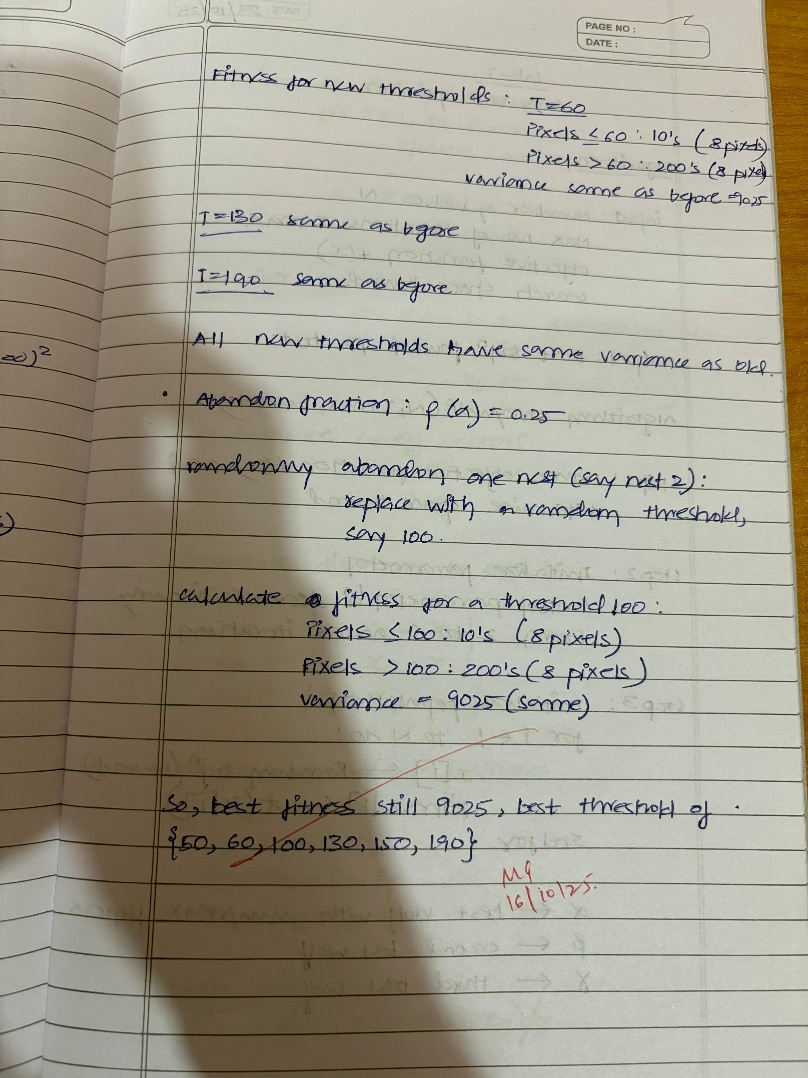 PAGE NO :
DATE :
Fitness for new thresholds : T=60
Pixels ≤ 60 : 10's (8 pixels)
Pixels > 60 : 200's (8 pixel)
variance same as before =9025
T=130 same as before
T=190 same as before
All new thresholds have same variance as old.
• Abandon fraction : p(a) = 0.25
randomly abandon one nest (say nest 2) :
replace with a random threshold,
say 100.
calculate fitness for a threshold 100 :
Pixels ≤ 100 : 10's (8 pixels)
Pixels > 100 : 200's (8 pixels)
variance = 9025 (same)
So, best fitness still 9025, best threshold of
{50, 60, 100, 130, 150, 190}
16/10/25.